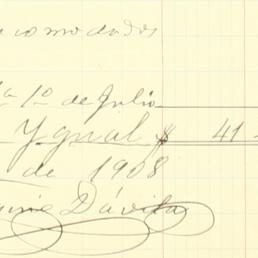 comodados
1º de Julio
Ygual $ 41
de 1908
Dávila